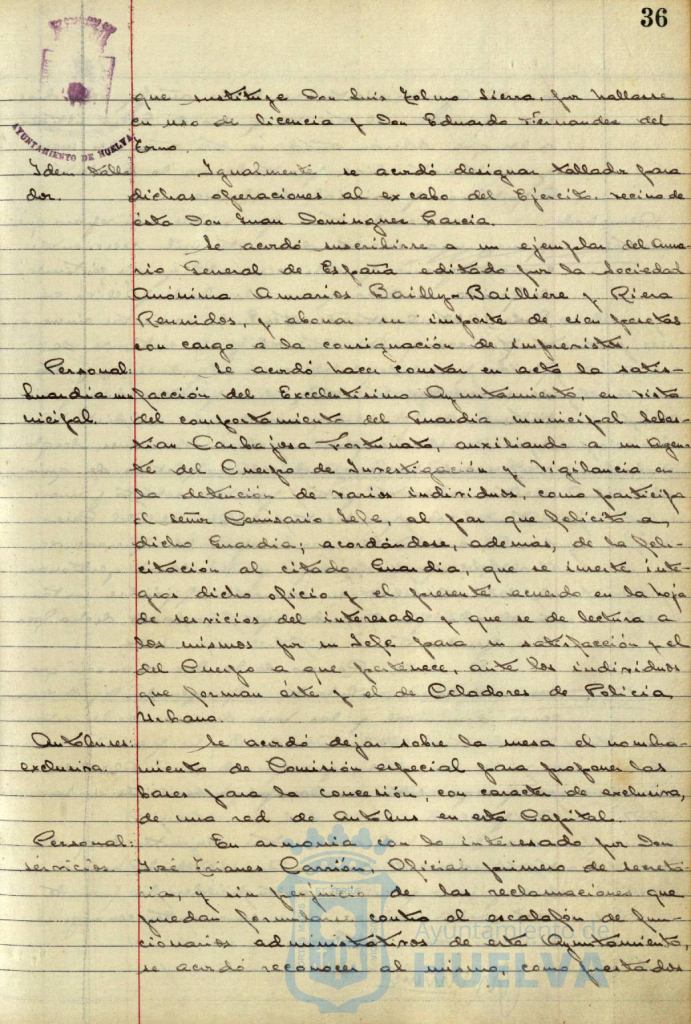 36
AYUNTAMIENTO DE HUELVA
que sustituye Don Luis Tolmo Sierra, por hallarse
en uso de licencia y Don Eduardo Fernandez del
Torno.
Idem Talla
dor.
Igualmente se acordó designar tallador para
dichas operaciones al ex cabo del Ejército, vecino de
ésta Don Juan Dominguez Garcia.
Se acordó suscribirse a un ejemplar del Anua-
rio General de España editado por la Sociedad
Anónima Anuarios Bailly-Bailliere y Riera
Reunidos, y abonar su importe de cien pesetas
con cargo a la consignación de imprevistos.
Personal:
Guardia mu
nicipal.
Se acordó hacer constar en acta la satis-
facción del Excelentisimo Ayuntamiento, en vista
del comportamiento del Guardia municipal Sebas-
tian Carbajosa Fortunato, auxiliando a un Agen-
te del Cuerpo de Investigación y Vigilancia en
la detención de varios individuos, como participa
el señor Comisario Jefe, al par que felicita a
dicho Guardia; acordándose, además, de la feli-
citación al citado Guardia, que se inserte inte-
gros dicho oficio y el presente acuerdo en la hoja
de servicios del interesado y que se de lectura a
los mismos por su Jefe para su satisfacción y el
del Cuerpo a que pertenece, ante los individuos
que forman éste y el de Celadores de Policia
Urbana.
Autobuses:
exclusiva.
Se acordó dejar sobre la mesa el nombra-
miento de Comisión especial para proponer las
bases para la concesión, con caracter de exclusiva,
de una red de Autobus en esta Capital.
Personal:
servicios.
En armonia con lo interesado por Don
José Carrión, Oficial primero de Secreta-
ria, y sin perjuicio de las reclamaciones que
puedan formularse contra el escalafón de fun-
cionarios administrativos de este Ayuntamiento,
se acordó reconocer al mismo, como prestados
Ayuntamiento de
HUELVA